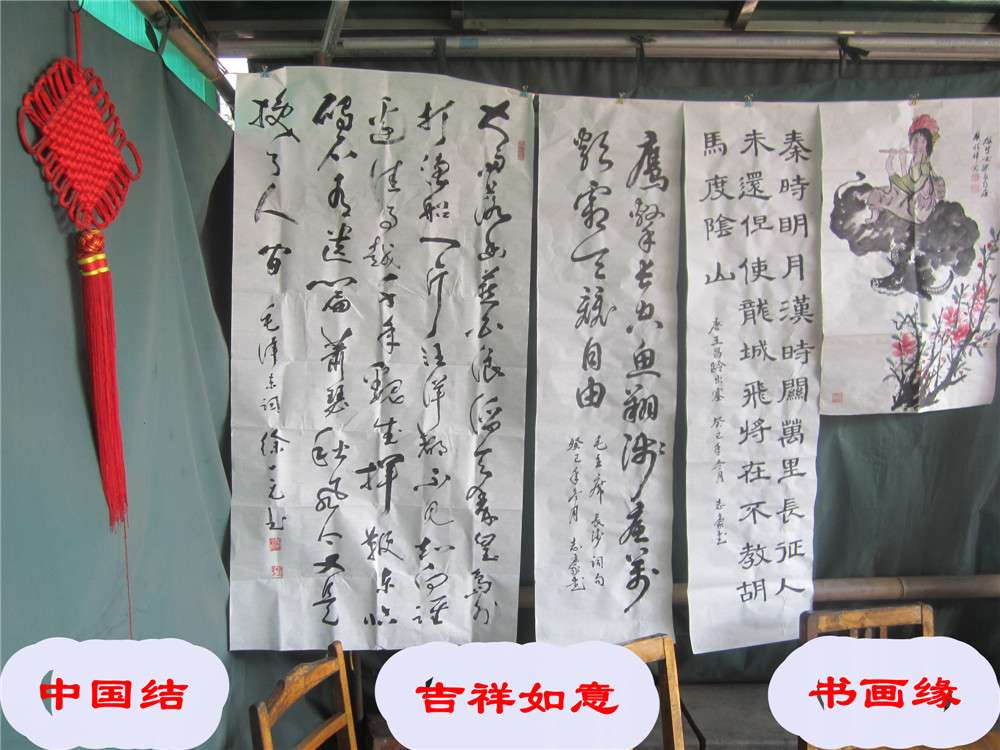 秦時明月漢時關萬里長征人
未還但使龍城飛將在不教胡
馬度陰山
唐王昌龄出塞 癸巳年冬月 志豪书
鷹擊长空鱼翔浅底萬
類霜天競自由
毛主席 长沙 词句
癸巳年冬月 志豪书
大雨落幽燕白浪滔天秦皇岛外
打渔船一片汪洋都不见知向谁
边往事越千年魏武揮鞭东临
碣石有遗篇萧瑟秋风今又是
换了人间
毛泽东词 徐元书
中国结
吉祥如意
书画缘